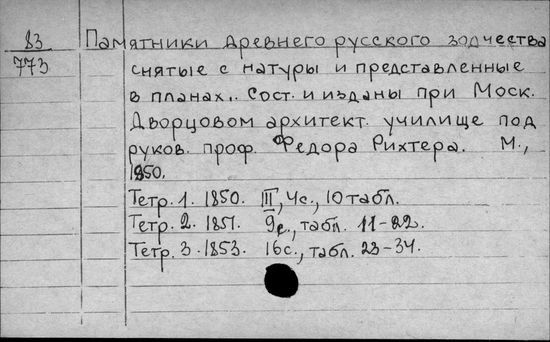 83 Памятники древнего русского зодчества
773 снятые с натуры и представленные
в планах.. Сост. и изданы при Моск.
Дворцовом архитект. училище под
руков. проф. Федора Рихтера. М.,
1850.
Тетр. 1. 1850. III, 4с., 10 табл.
Тетр. 2. 1851. 9с., табл. 11-22.
Тетр. 3. 1853. 16с., табл. 23-34.